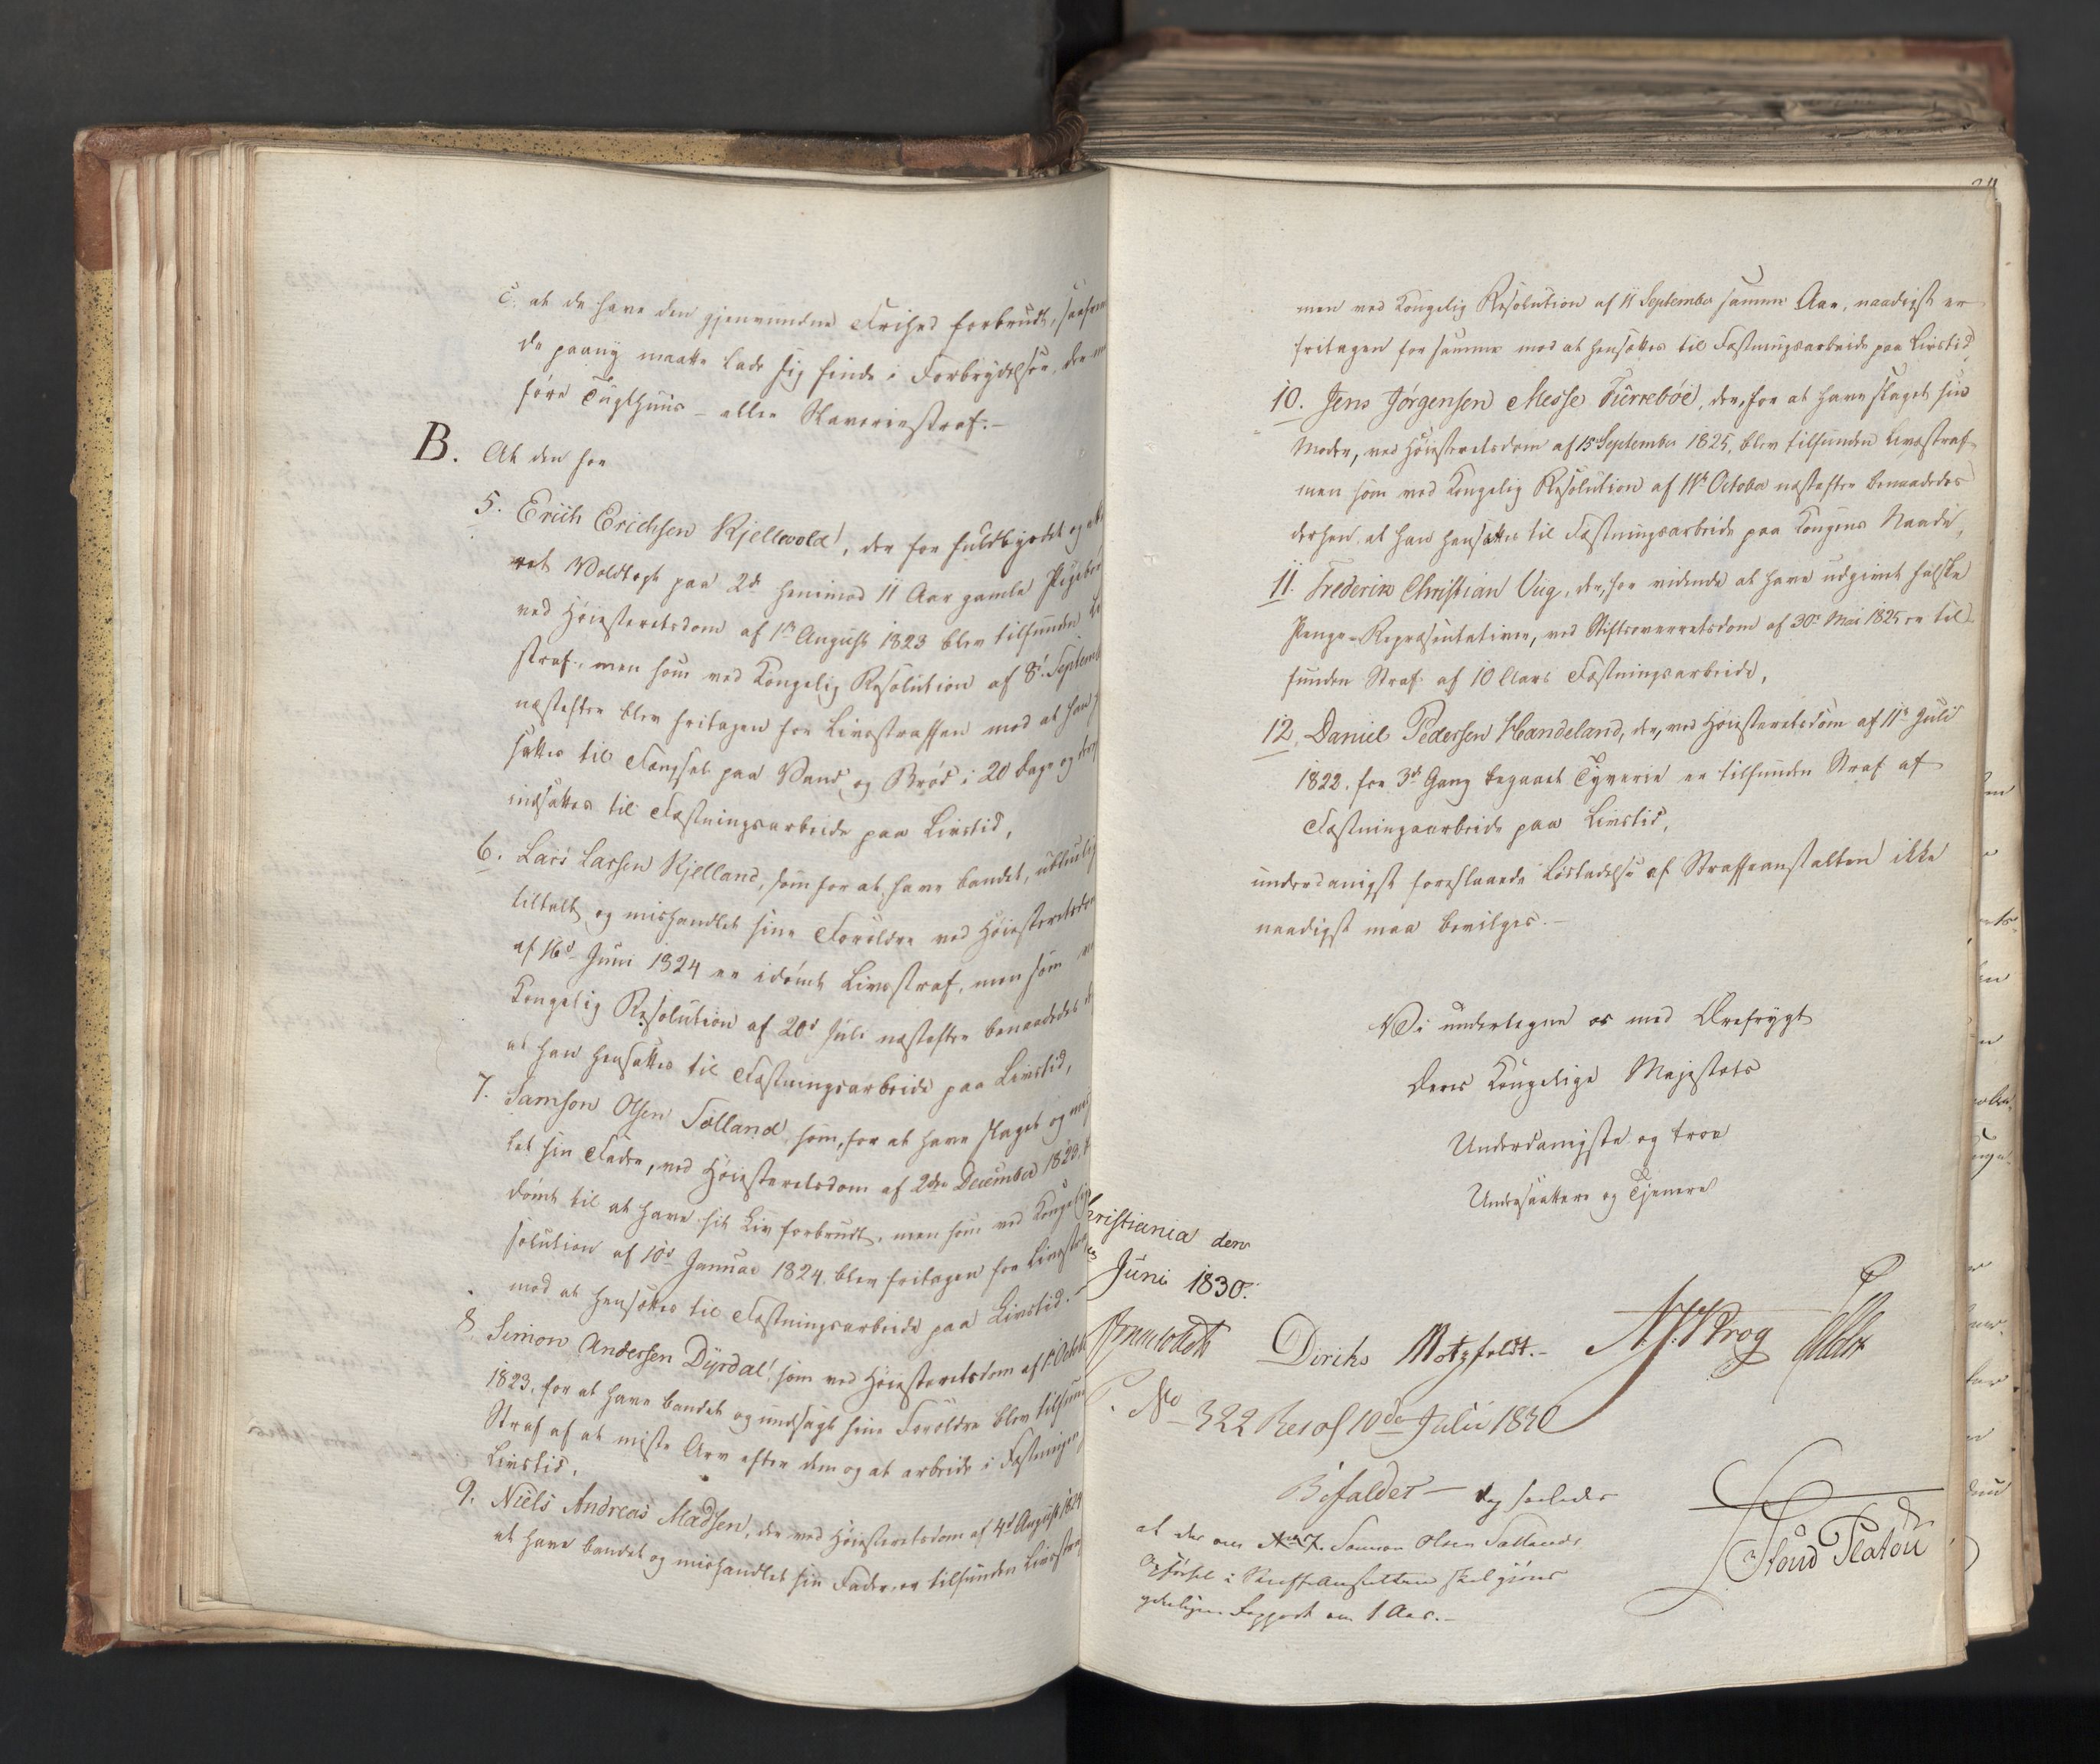 C. at de have den gjenvundne Frihed forbrudt, saafremt
de paany maatte lade sig finde i Forbrydelser, der
føre Tugthuus- eller Slaveriestraf.-
B. At den for
5. Erich Erichsen Kjellevold, der for fuldbyrdet og
ret Voldtægt paa 2de henimod 11 Aar gamle Pigebørn
ved Høiesteretsdom af 1ste August 1823 blev tilfunden
straf, men som ved Kongelig Resolution af 8de Septemb
næstefter blev fritagen for Livsstraffen mod at han
sattes til Fængsel paa Vand og Brød i 20 Dage og
indsættes til Fæstningsarbeide paa Livstid,
6. Lars Larsen Kjelland, som for at have bandet, utilbørlig
tiltalt og mishandlet sine Forældre ved Høiesteretsdom
af 16d Juni 1824 er idømt Livsstraf, men som
Kongelig Resolution af 20d Juli næstefter benaadedes
at han hensættes til Fæstningsarbeide paa Livstid,
7. Samson Olsen Sælland, som, for at have slaget og
let sin Fader, ved Høiesteretsdom af 2den December 1823,
dømt til at have sit Liv forbrudt, men som ved Kongelig
solution af 10d Januar 1824 blev fritagen for Livsstraf
mod at hensættes til Fæstningsarbeide paa Livstid.-
8. Simon Andersen Dÿrdal, som ved Høiesteretsdom af 1d Octob
1823, for at have bandet og undsagt sine Forældre blev tilfund
Straf af at miste Arv efter dem og at arbeide i Fæstningen
Livstid,
9. Niels Andreas Madsen, der ved Høiesteretsdom af 4d August 1824
at have bandet og mishandlet sin Fader, er tilfunden Livsstraf
men ved Kongelig Resolution af 11 September samme Aar, naadigst er
fritagen for samme mod at hensættes til Fæstningsarbeide paa Livstid,
10. Jens Jørgensen Messe Türrebøe, der, for at have slaget sin
Moder, ved Høiesteretsdom af 15 September 1825, blev tilfunden Livsstraf
men som ved Kongelig Resolution af 11te October næstefter benaadedes
derhen, at han hensættes til Fæstningsarbeide paa Kongens Naade,
11. Frederik Christian Vug, der, for vidende at have udgivet falske
Penge-Repræsentativer, ved Stiftsoverretsdom af 30te Mai 1825 er til-
funden Straf af 10 Aars Fæstningsarbeide,
12. Daniel Pedersen Handeland, der, ved Høiesteretsdom af 11te Juli
1822, for 3de Gang begaaet Tyverie er tilfunden Straf af
Fæstningsarbeide paa Livstid,
underdanigst foreslaaede Løsladelse af Straffeanstalten ikke
naadigst maa bevilges.-
Vi undertegne os med Ærefrygt
Deres Kongelige Majestæts
Underdanigste og troe
Undersaatter og Tjenere
Christiania den
Juni 1830.
Diriks Motzfeldt.- Krog
No 322 Res af 10de Julii 1830
Bifaldet - dog saaledes
at der om No 7. Samson Olsen Sællands
Opførsel i Straffeanstalten skal gjøres
yderligere Rapport om 1 Aar.-
Stoud Platou